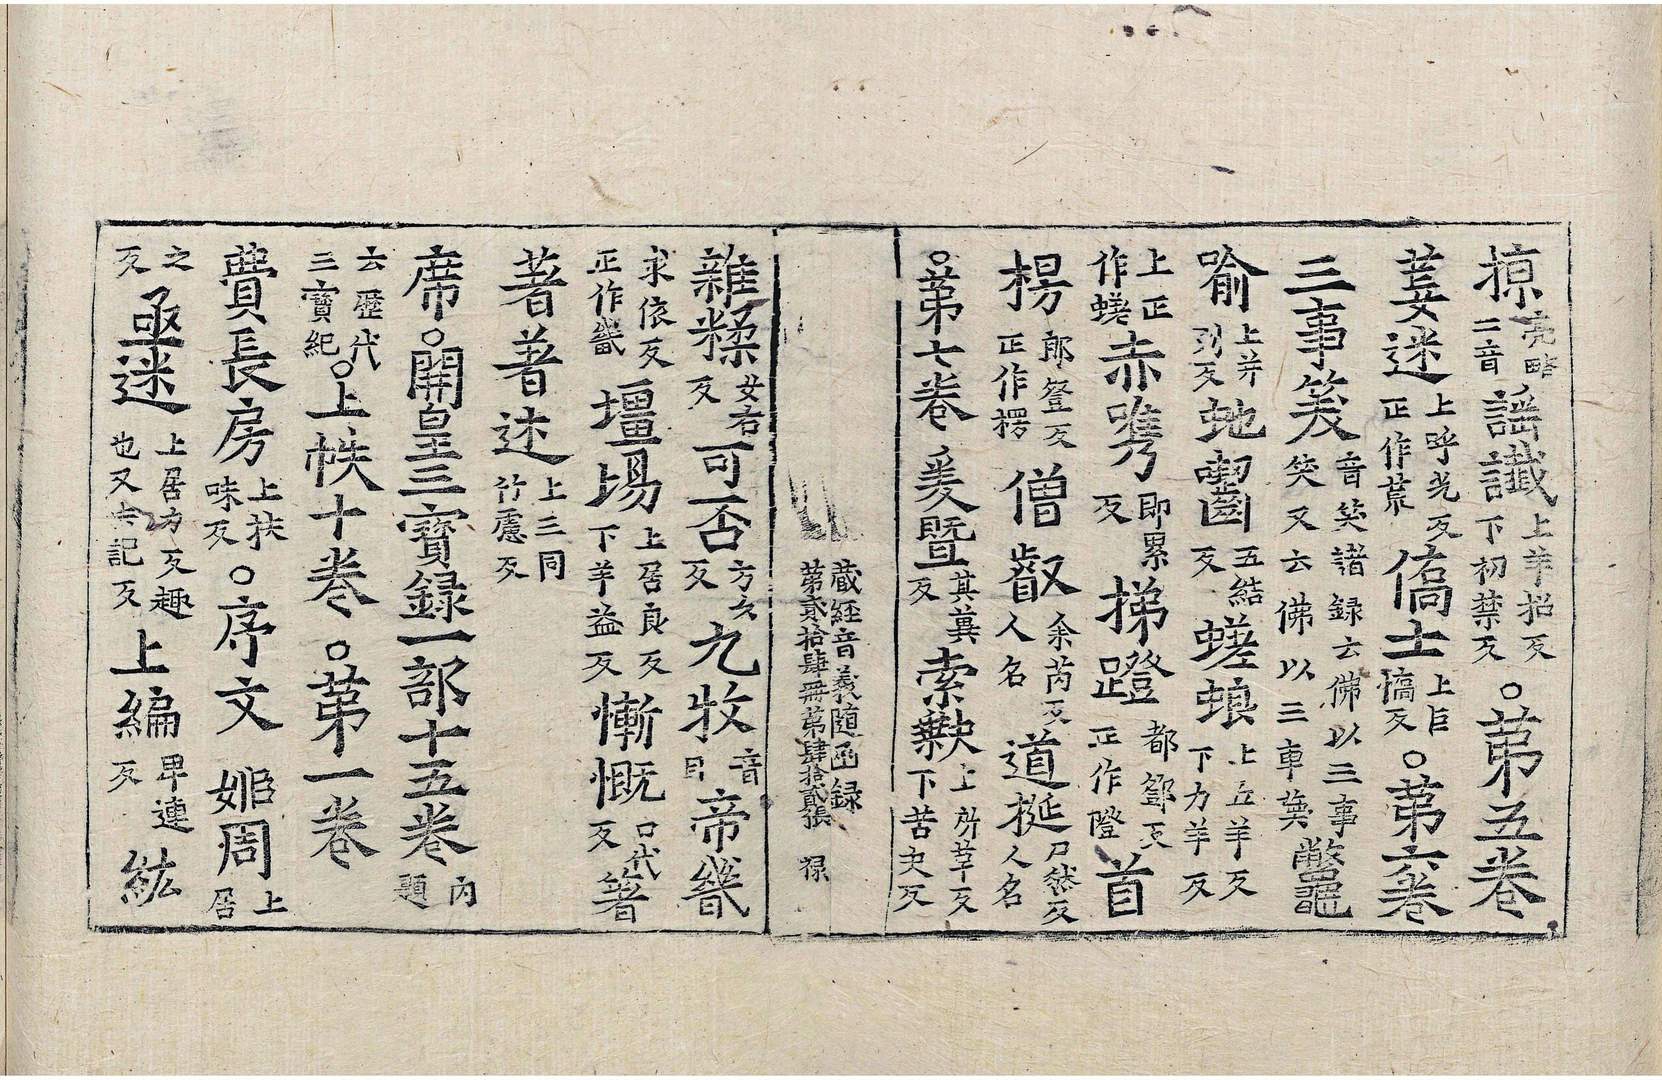 掠亮略二音謡讖上羊招反下初禁反○苐五卷
荾迷上呼光反正作荒僑士上巨憍反○苐六卷
三事䇲音笑諸録云佛以三事笑又云佛以三車䇲鷩謳
喻上并列反虵齧五結反蜣蜋上丘羊反下力羊反
上正作蟯赤㕙即累反梯蹬都鄧反正作隥首
楊郎登反正作楞僧叡余芮反人名道挻尸然反人名
○苐七卷爰暨其兾反索歟上所革反下苦夬反
藏經音義随函録
第貳拾肆冊第肆拾貳張 禄
雜糅女右反可否方久反九牧音目帝㡬
求依反正作畿壃場上居良反下羊益反慚慨口代反箸
著著述上三同竹慮反
席○開皇三寳録一部十五卷内題
云歴代三寳紀○上帙十卷○苐一卷
費長房上扶味反○序文姬周上居
之反亟迷上居力反趣也又去記反上編卑連反紘